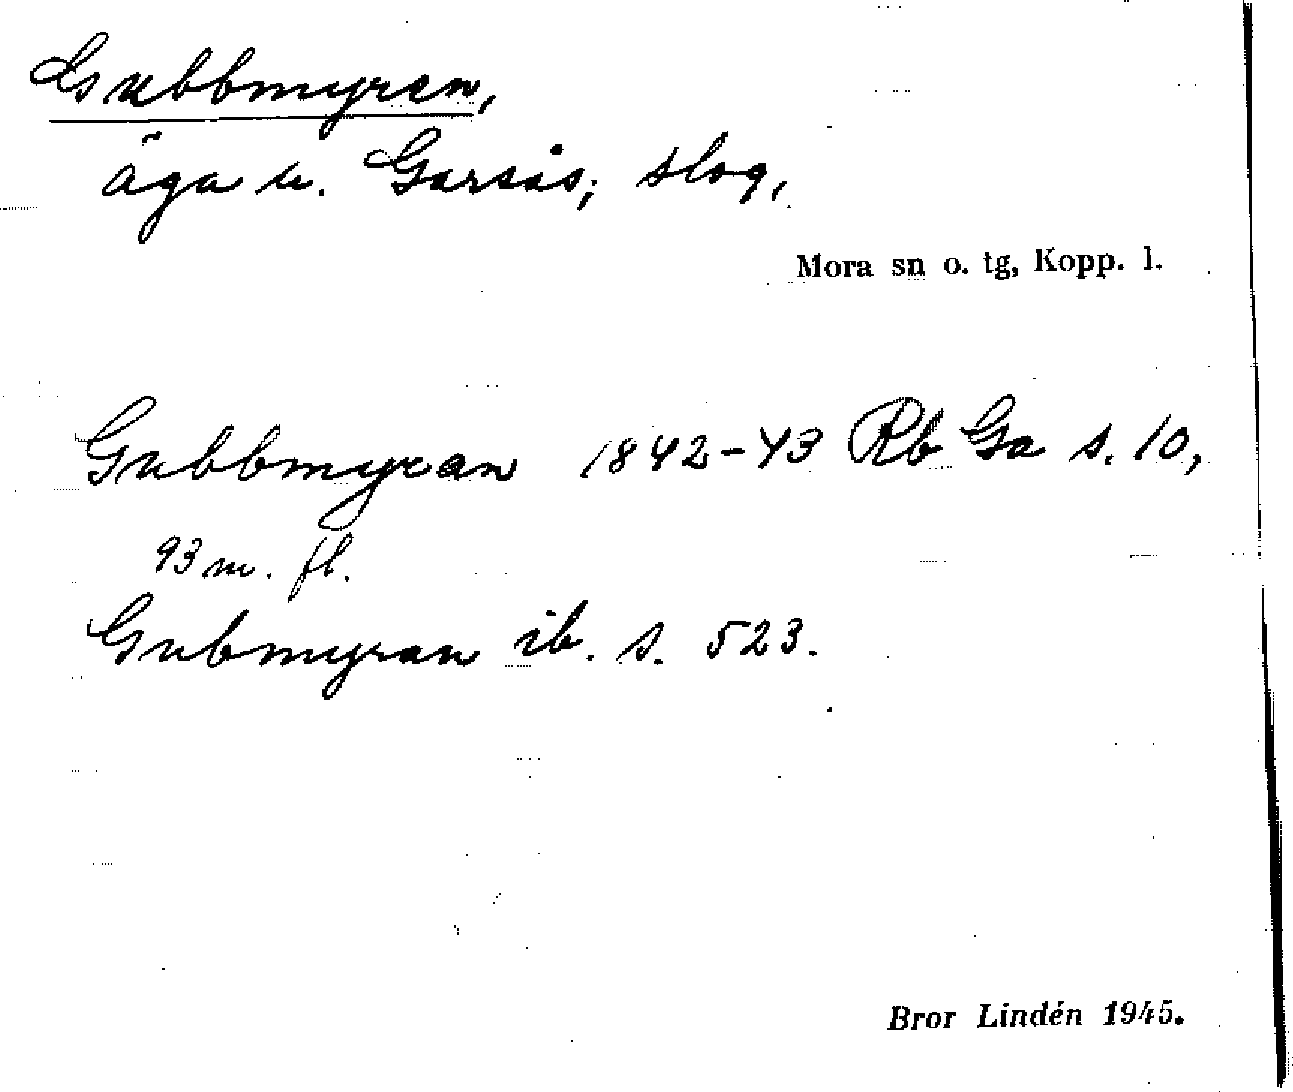 Gubbmyren,
äga u. Garsås; slog,
Mora sn o. tg, Kopp. l.
Gubbmyran 1842-43 Rb Ga s. 10,
93 m. fl.
Gubmyran ib. s. 523.
Bror Lindén 1945.